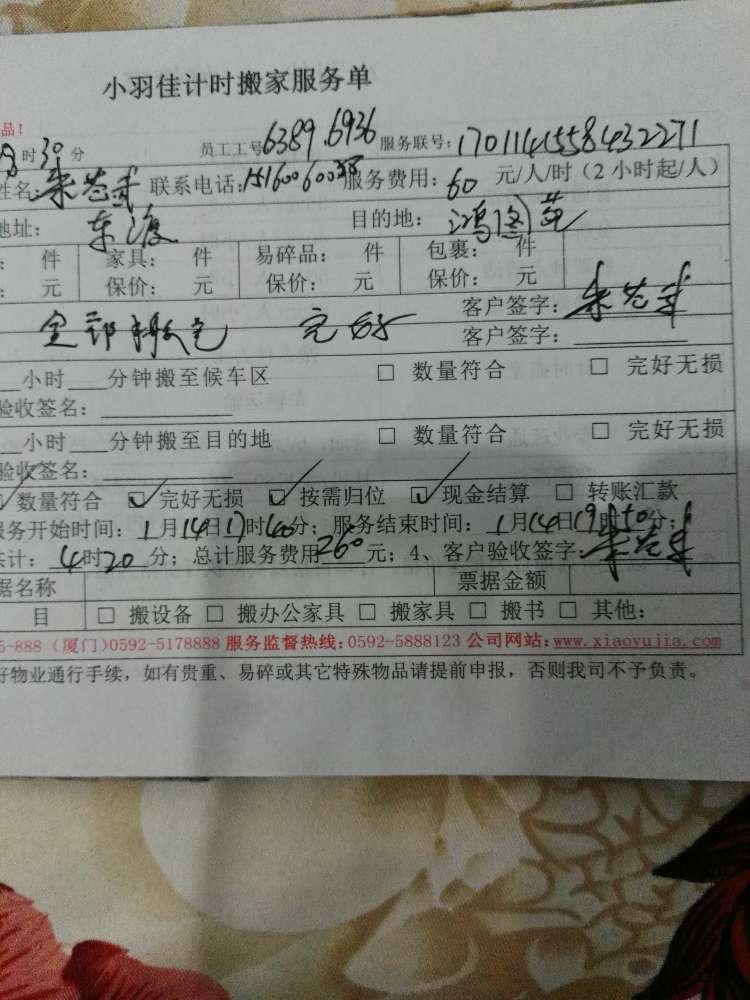 小羽佳计时搬家服务单
品！
时30分 员工工号6389.6936 服务联号：1701141558432271
姓名： 联系电话： 服务费用：60 元/人/时（2小时起/人）
地址：东渡 目的地：鸿图苑
： 件 家具： 件 易碎品： 件 包裹： 件
： 元 保价： 元 保价： 元 保价： 元
客户签字：
全部搬完 完好 客户签字：
小时 分钟搬至候车区 □ 数量符合 □ 完好无损
验收签名：
小时 分钟搬至目的地 □ 数量符合 □ 完好无损
验收签名：
☑数量符合 ☑ 完好无损 ☑ 按需归位 ☑ 现金结算 □ 转账汇款
服务开始时间：1月14日17时40分；服务结束时间：1月14日19时50分；
共计：4时20分；总计服务费用260元；4、客户验收签字：
据名称 票据金额
目 □ 搬设备 □ 搬办公家具 □ 搬家具 □ 搬书 □ 其他：
5-888（厦门)0592-5178888 服务监督热线：0592-5888123 公司网站：www.xiaoyujia.com
好物业通行手续，如有贵重、易碎或其它特殊物品请提前申报，否则我司不予负责。